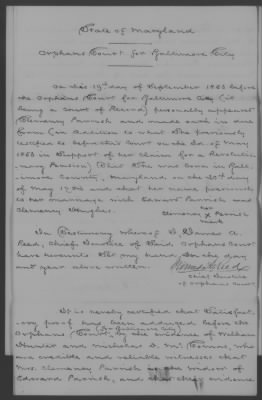 State of Maryland
Orphans Court for Baltimore City
On this 19th day of September 1853 before
the Orphans Court for Baltimore City (it
being a Court of Record) personally appeared
Clemency Parrish and made oath in due
form (in addition to what she previously
testified to before this Court on the 2d. of May
1853 in support of her claim for a Revolution-
ary Pension) that she was born in Balt-
imore County, Maryland, on the
of May and that her name previously
to her marriage with Edward Parrish was
Clemency Hughes.
her
Clemency X Parrish
mark
In Testimony Whereof I, James A.
Reed, Chief Justice of said Orphans Court
have hereunto set my hand on the day
and year above written.
Chief Justice
of Orphans Court
It is hereby certified that satisfact-
ory proof has been adduced before the
Orphans Court by the evidence of William
Hunter and Nicholas D. who
are credible and reliable witnesses that
Mrs. Clemency Parrish is the widow of
Edward Parrish, and that their evidence